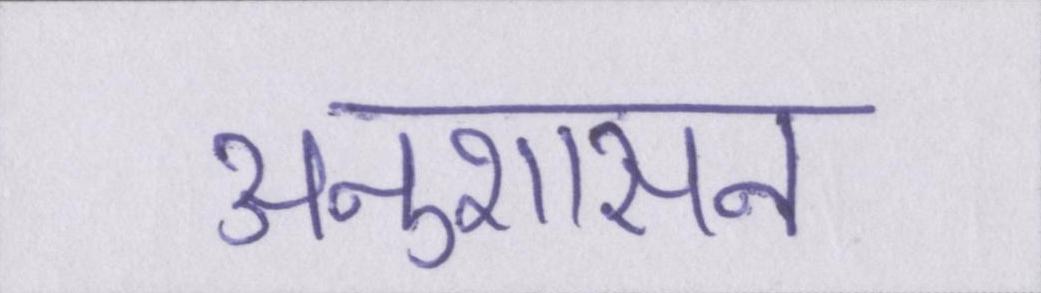 अनुशासन